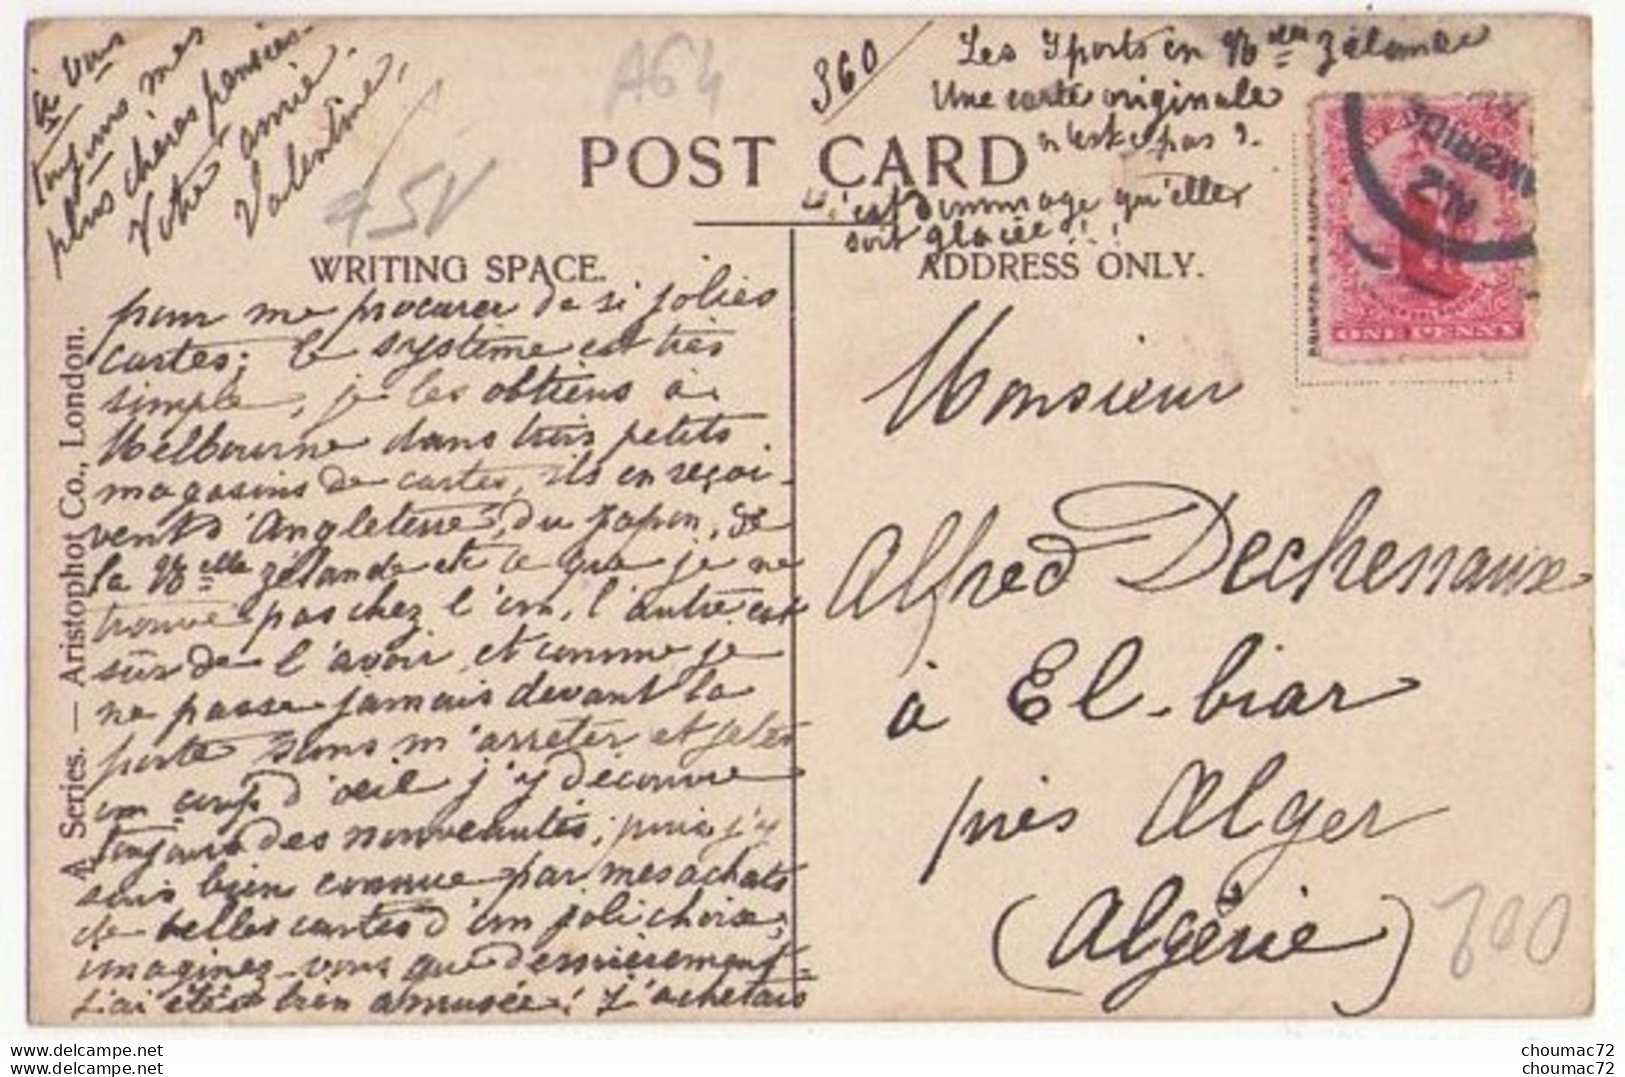 à vous
toujours mes
plus chères pensées.
Votre amie.
Valentine,
A64
45V
360
Les Sports en Nlle Zélande
Une carte originale
n'est-ce pas ?
c'est dommage qu'elle
soit glacée !!!
POST CARD
WRITING SPACE.
ADDRESS ONLY.
ONE PENNY
pour me procurer de si jolies
cartes; le système est très
simple, je les obtiens à
Melbourne dans trois petits
magasins de cartes, ils en reçoi-
vent d'Angleterre, du Japon, de
la Nlle Zélande et ce que je ne
trouve pas chez l'un, l'autre est
sûr de l'avoir, et comme je
ne passe jamais devant la
porte sans m'arrêter et jeter
un coup d'œil j'y découvre
toujours des nouveautés; puis j'y
suis bien connue par mes achats
de belles cartes d'un joli choix;
imaginez-vous que dernièrement
j'ai été bien amusée! J'achetais
A Series. — Aristophot Co., London.
Monsieur
Alfred Dechenaux
à El-biar
près Alger
(Algérie)
choumac72
choumac72